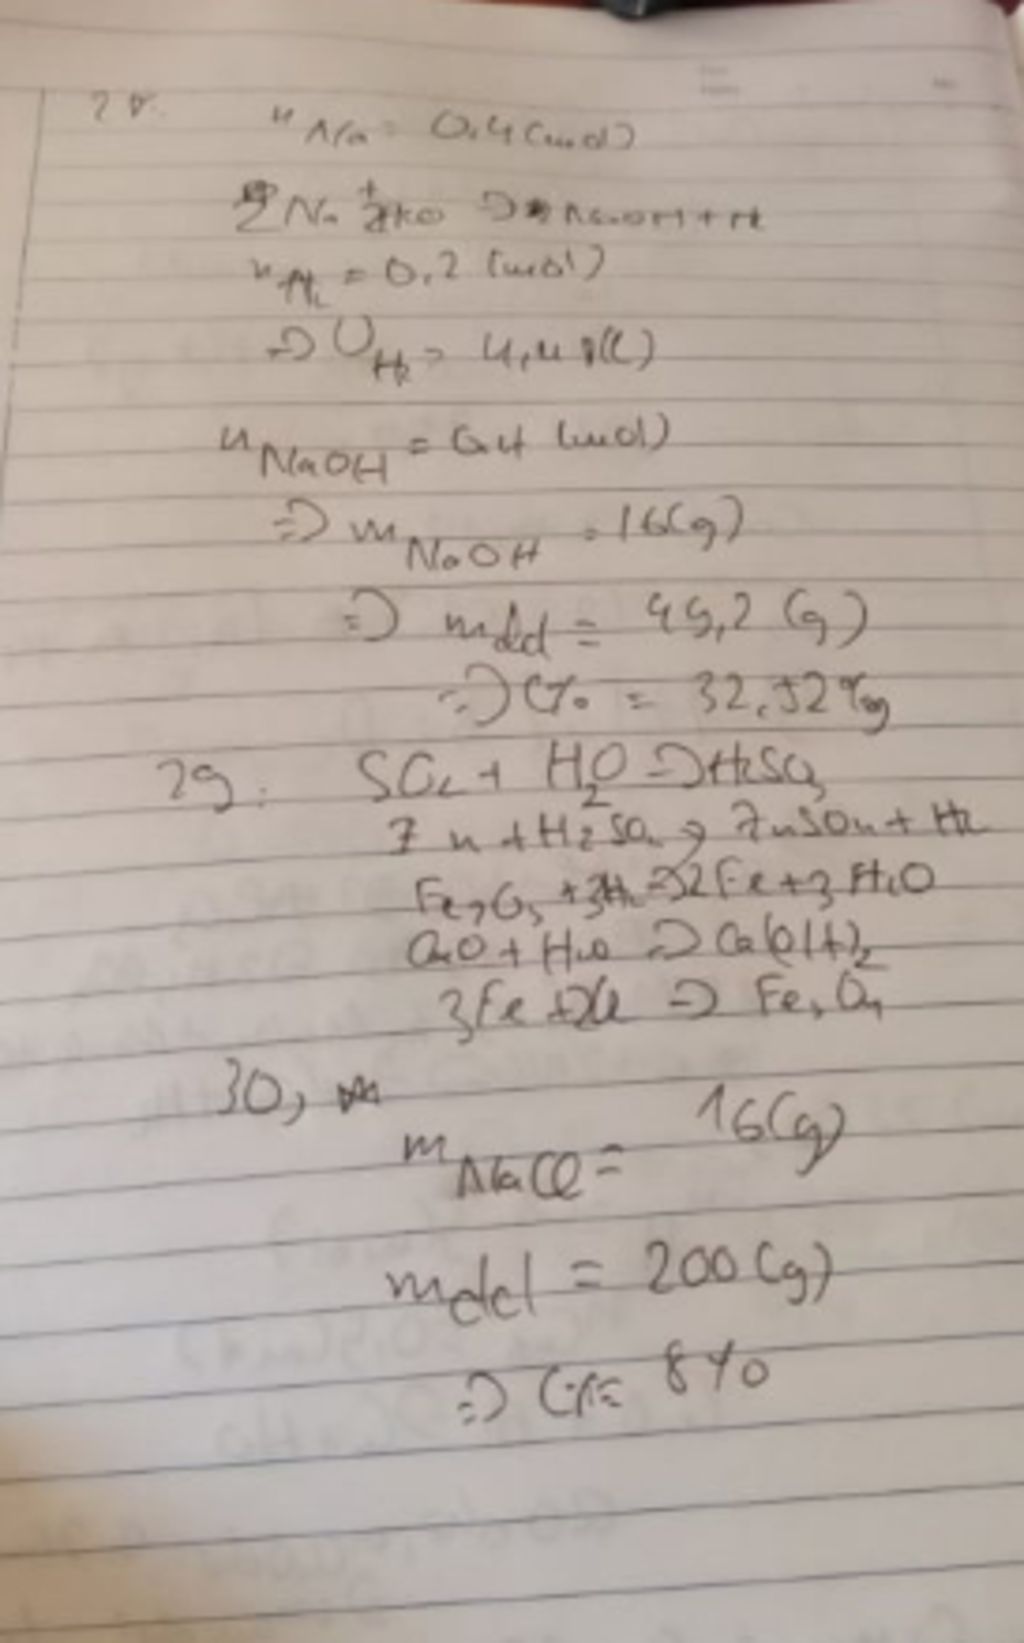 28.
n Na = 0,4 (mol)
2Na + 2H2O => NaOH + H2
n H2 = 0,2 (mol)
=> V H2 = 4,48 (l)
n NaOH = 0,4 (mol)
=> m NaOH = 16(g)
=> mdd = 49,2 (g)
=> C% = 32,52%
29: SO2 + H2O => H2SO3
Zn + H2SO4 => ZnSO4 + H2
Fe2O3 + 3H2 => 2Fe + 3H2O
CaO + H2O => Ca(OH)2
3Fe + 2O2 => Fe3O4
30,
m NaCl = 16(g)
mdd = 200 (g)
=> C% = 8%